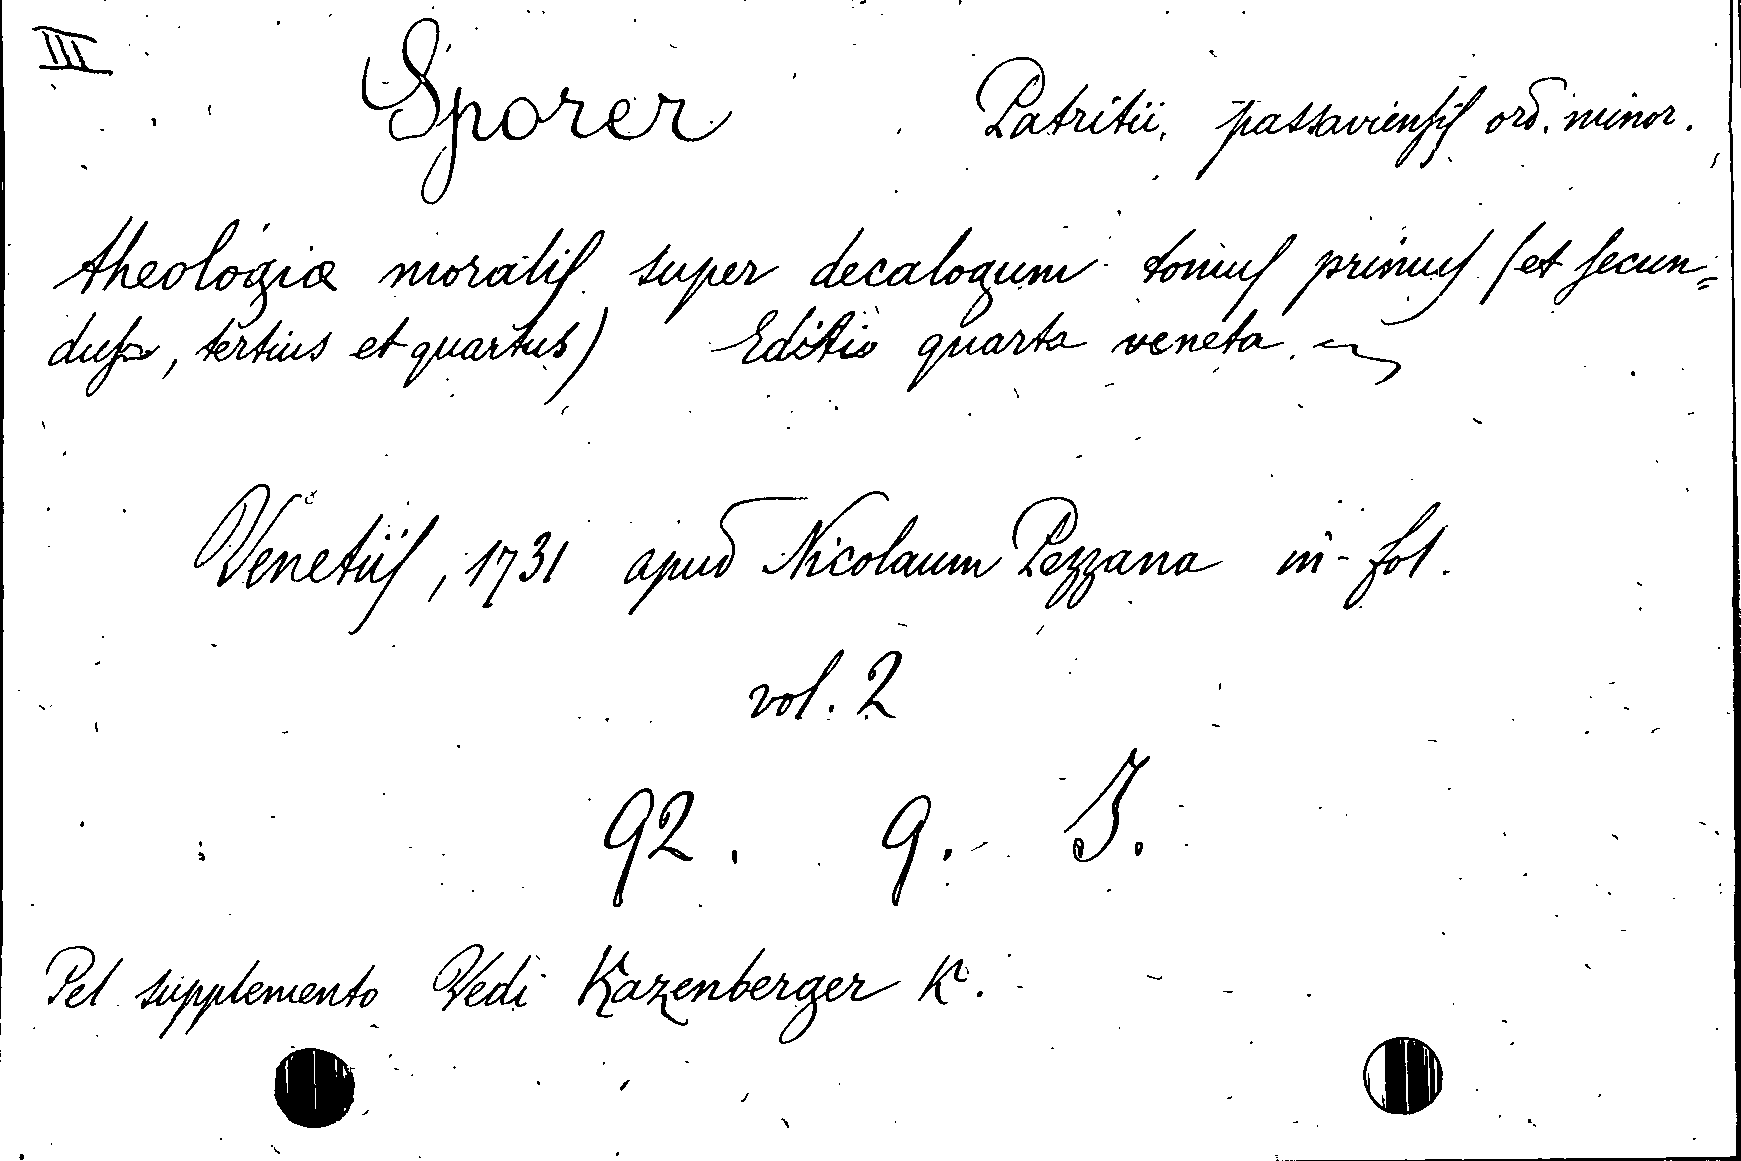 III
Sporer Patritii, passaviensis ord. minor.
theologiæ moralis super decalogum tomus primus (et secun=
dus, tertius et quartus) Editio quarta veneta.
Venetiis, 1731 apud Nicolaum Pezzana in-fol.
vol. 2
92. 9. I.
Pel supplemento Vedi Kazenberger K.